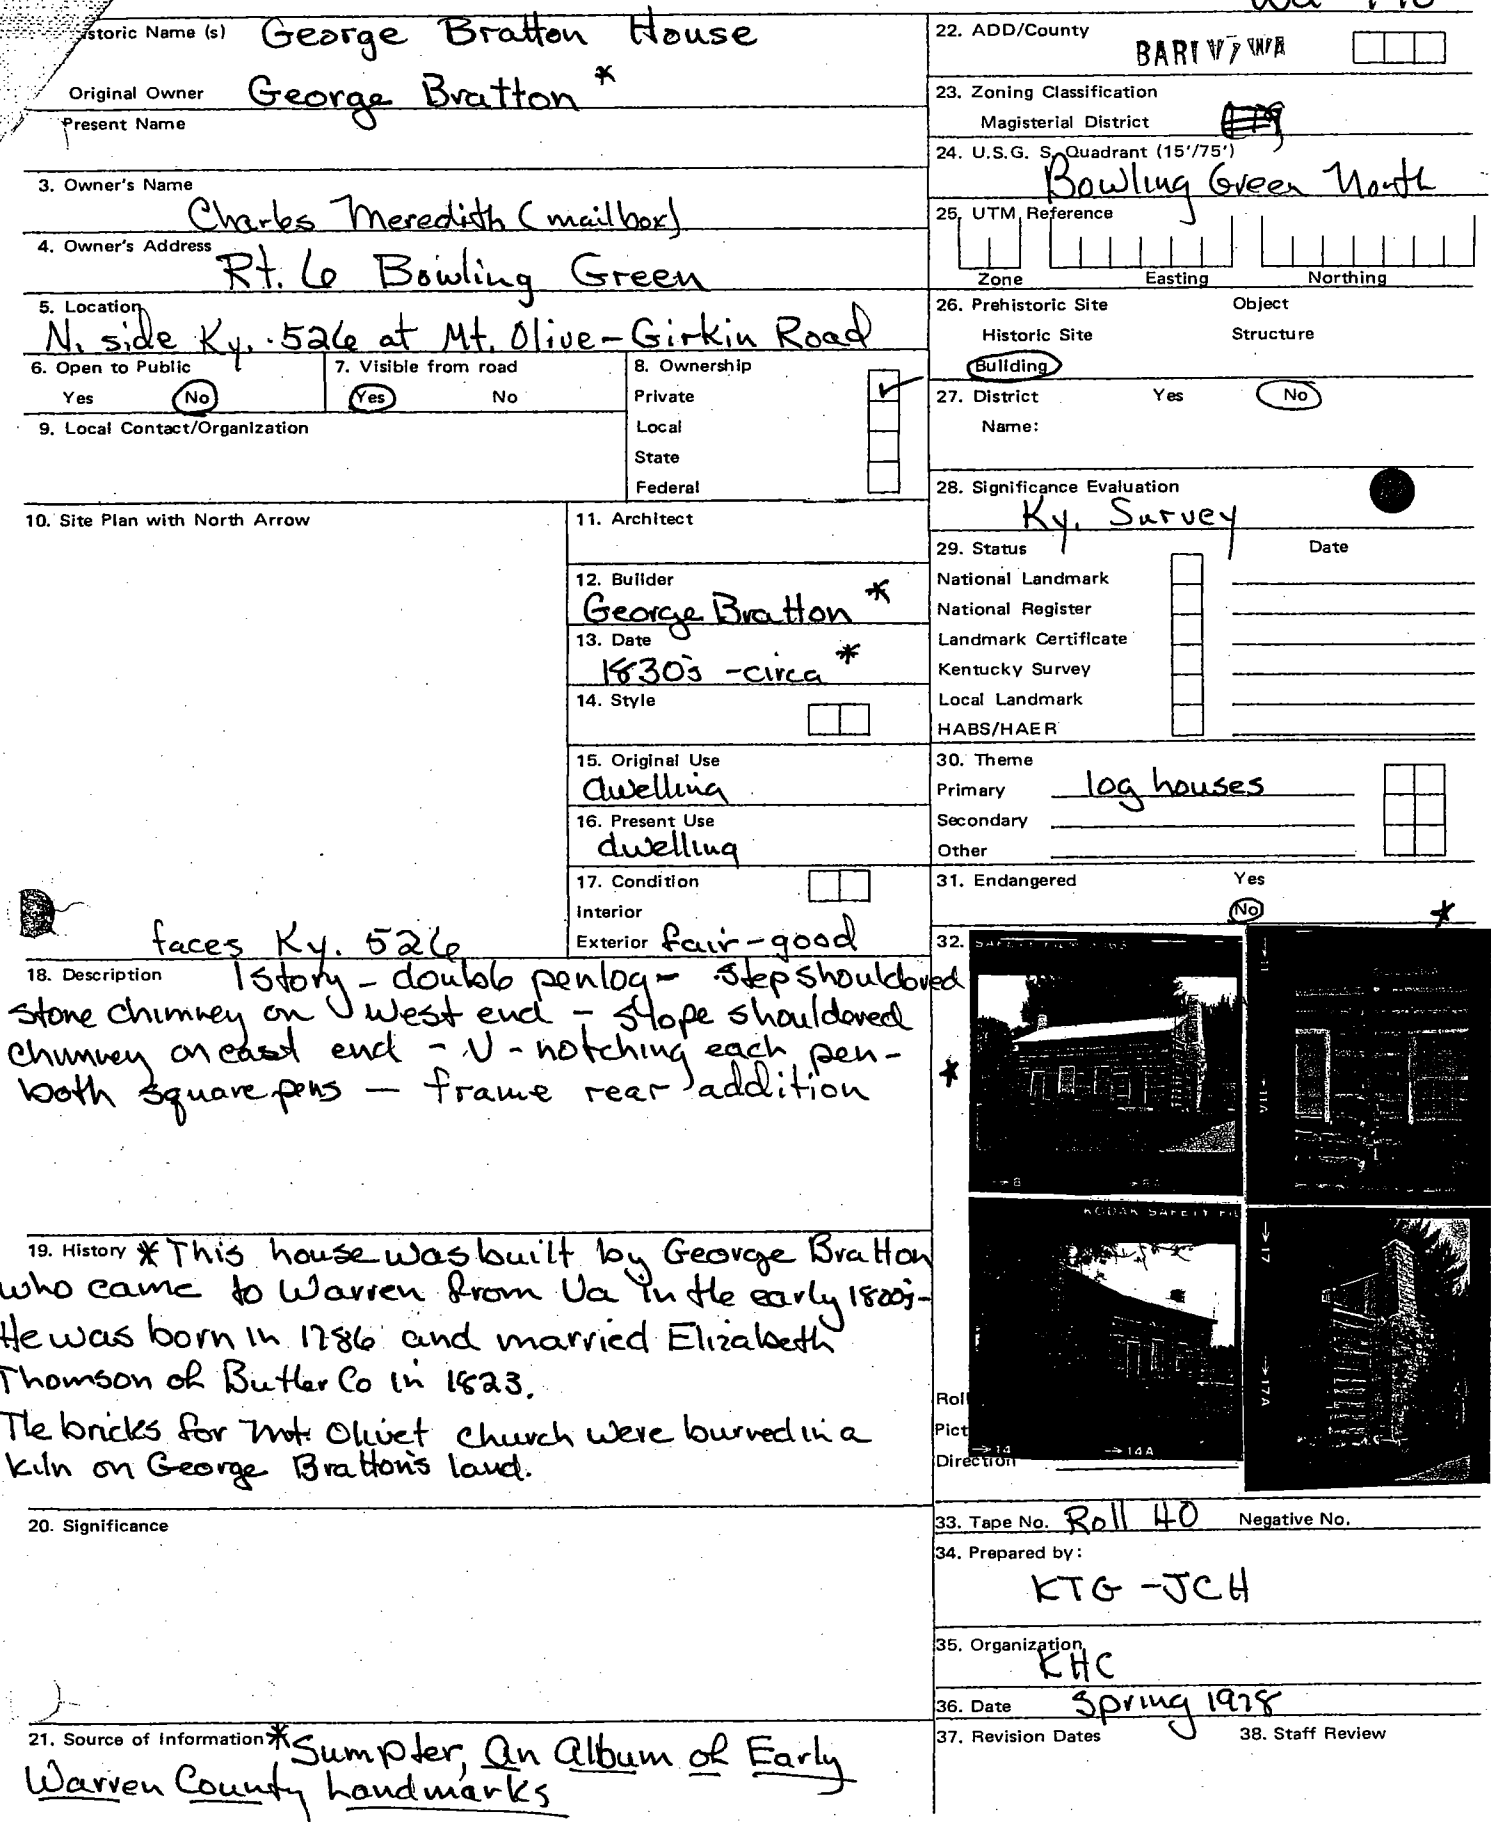 storic Name (s) George Bratton House
Original Owner George Bratton *
Present Name
3. Owner's Name
Charles Meredith (mailbox)
4. Owner's Address
Rt. 6 Bowling Green
5. Location
N. side Ky. 526 at Mt. Olive-Girkin Road
6. Open to Public
Yes No
7. Visible from road
Yes No
8. Ownership
Private
Local
State
Federal
9. Local Contact/Organization
10. Site Plan with North Arrow
faces Ky. 526
11. Architect
12. Builder
George Bratton *
13. Date
1830's -circa *
14. Style
15. Original Use
dwelling
16. Present Use
dwelling
17. Condition
Interior
Exterior fair-good
18. Description 1 story - double pen log - step shouldered
stone chimney on west end - slope shouldered
chimney on east end - V-notching each pen-
both square pens - frame rear addition
19. History * This house was built by George Bratton
who came to Warren from Va in the early 1800's-
He was born in 1786 and married Elizabeth
Thomson of Butler Co in 1823.
The bricks for Mt. Olivet church were burned in a
kiln on George Bratton's land.
20. Significance
21. Source of Information * Sumpter, An Album of Early
Warren County Landmarks
22. ADD/County
23. Zoning Classification
Magisterial District
24. U.S.G. S. Quadrant (15'/75')
Bowling Green North
25. UTM Reference
Zone Easting Northing
26. Prehistoric Site Object
Historic Site Structure
Building
27. District Yes No
Name:
28. Significance Evaluation
Ky. Survey
29. Status Date
National Landmark
National Register
Landmark Certificate
Kentucky Survey
Local Landmark
HABS/HAER
30. Theme
Primary log houses
Secondary
Other
31. Endangered Yes
No
*
32.
*
→8 →8A
→11A
KODAK SAFETY FIL
→14 →14A
→17
→17A
Roll
Pict
Direction
33. Tape No. Roll 40 Negative No.
34. Prepared by:
KTG -JCH
35. Organization
KHC
36. Date Spring 1978
37. Revision Dates 38. Staff Review